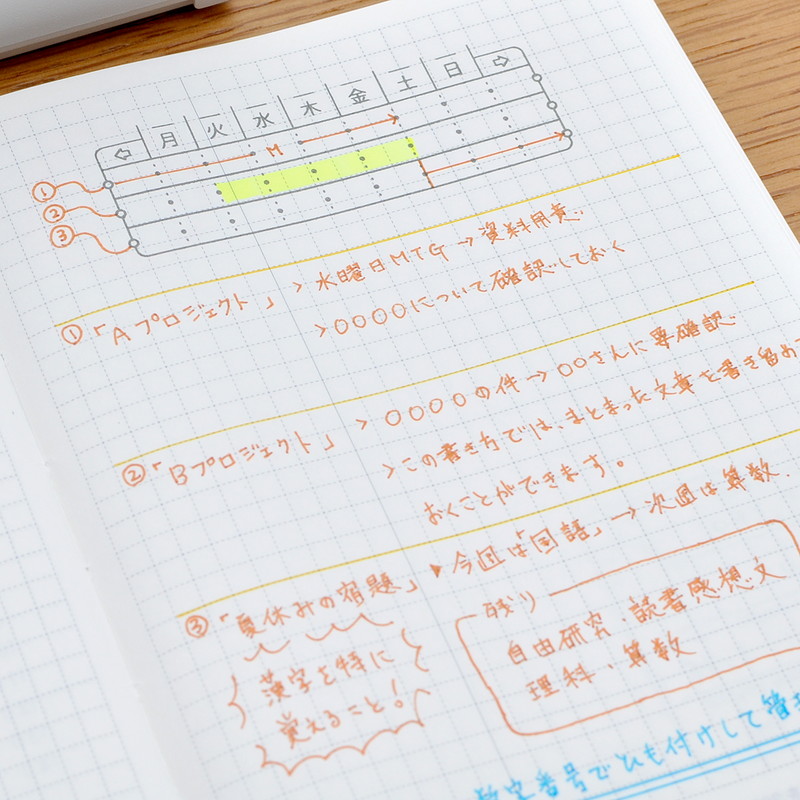 月 火 水 木 金 土 日
M
①
②
③
①「Aプロジェクト」 > 水曜日MTG→資料用意.
>○○○○について確認しておく
②「Bプロジェクト」 > ○○○○の件→○○さんに要確認.
>この書き方では、まとまった文章を書き留め
おくことができます。
③「夏休みの宿題」 ▶今週は「国語」→次週は算数.
漢字を特に
覚えること!
残り
自由研究・読書感想文
理科・算数
番号でひも付けして管